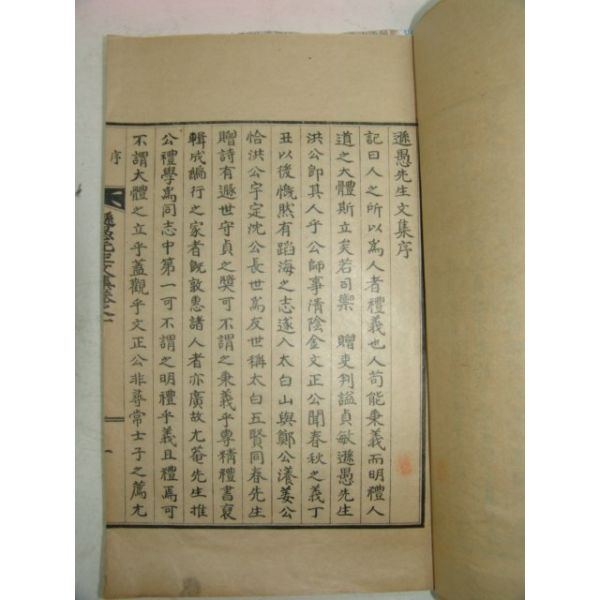 遯愚先生文集序
記曰人之所以爲人者禮義也人苟能秉義而明禮人
道之大體斯立矣若司禦 贈吏判謚貞敏遯愚先生
洪公卽其人乎公師事淸陰金文正公聞春秋之義丁
丑以後慨然有蹈海之志遂入太白山與鄭公瀁姜公
恰洪公宇定沈公長世爲友世稱太白五賢同春先生
贈詩有遯世守貞之奬可不謂之秉義乎專精禮書裒
輯成編行之家者旣敦惠諸人者亦廣故尤菴先生推
公禮學爲同志中第一可不謂之明禮乎義且禮焉可
不謂大體之立乎蓋觀乎文正公非尋常士子之薦尤
序
一